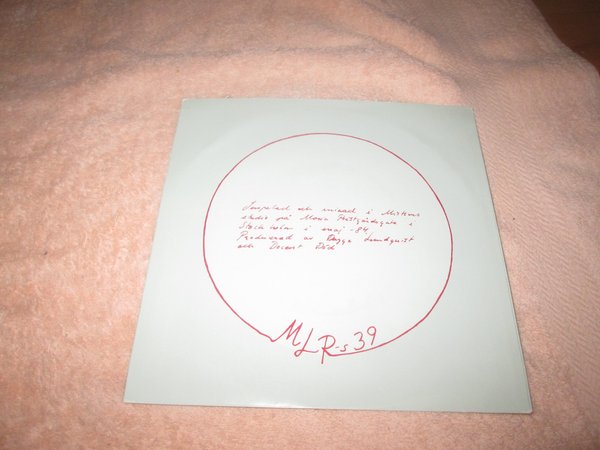 Inspelad och mixad i Mistlurs
studio på Maria Prästgårdsgata i
Stockholm i maj -84.
Producerad av Dagge Lundquist
och Decent Död
MLR-s 39